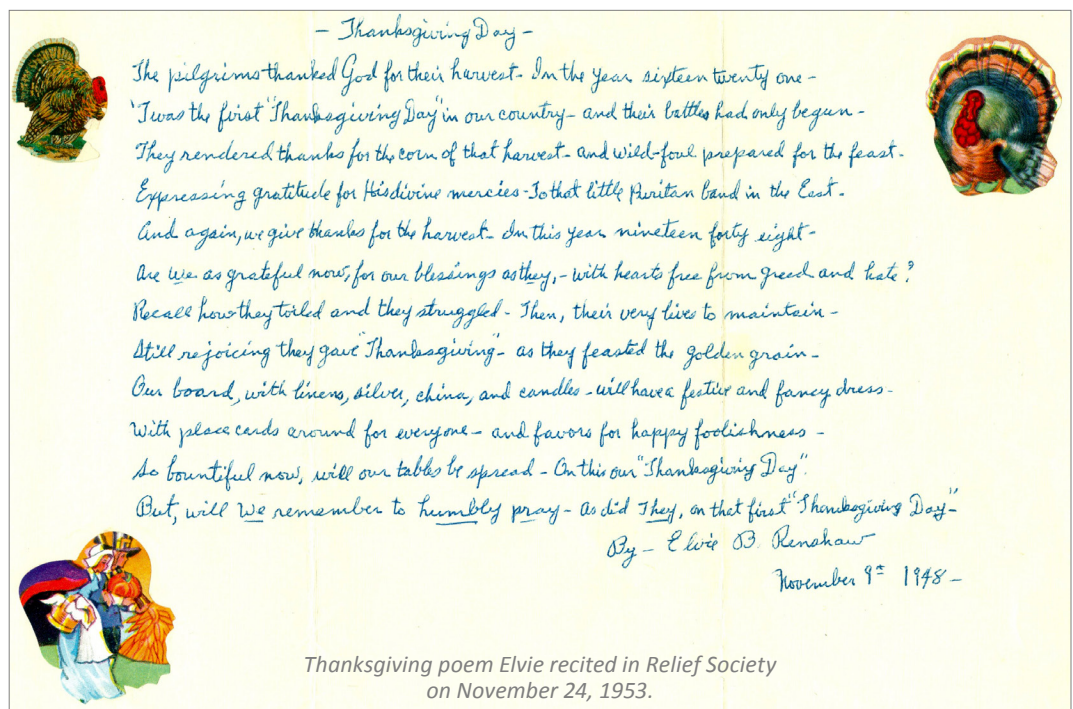 - Thanksgiving Day -
The pilgrims thanked God for their harvest - In the year sixteen twenty one -
'Twas the first "Thanksgiving Day" in our country - and their battles had only begun -
They rendered thanks for the corn of that harvest - and wild-foul prepared for the feast -
Expressing gratitude for His divine mercies - To that little Puritan band in the East -
And again, we give thanks for the harvest - In this year nineteen forty eight -
Are we as grateful now, for our blessings as they, - with hearts free from greed and hate?
Recall how they toiled and they struggled - Then, their very lives to maintain -
Still rejoicing they gave "Thanksgiving" - as they feasted the golden grain -
Our board, with linens, silver, china, and candles - will have a festive and fancy dress -
With place cards around for everyone - and favors for happy foolishness -
So bountiful now, will our tables be spread - On this our "Thanksgiving Day".
But, will We remember to humbly pray - as did They, on that first "Thanksgiving Day" -
By - Elvie B. Renshaw
November 9th 1948 -
Thanksgiving poem Elvie recited in Relief Society
on November 24, 1953.